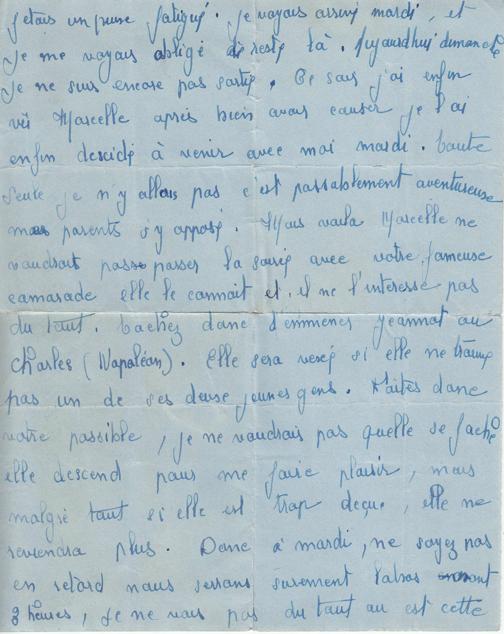 j'etais un peune fatigué. je voyais arrivé mardi, et
je me voyais obligé de resté là. Aujourdhui dimanche
je ne suis encore pas sortie. Ce soir j'ai enfin
vu Marcelle après bien avoir causer je l'ai
enfin descidé à venir avec moi mardi. toute
seule je n'y allais pas c'est passablement aventureuse
mes parents s'y opposé. Mais voila Marcelle ne
voudrait pas passer la soirée avec votre fameuse
camarade elle le connait et il ne l'interesse pas
du tout. tachez donc d'emmener Jeannot ou
Charles (Napoléon). Elle sera vexé si elle ne trouve
pas un de ses deux jeunes gens. Faites donc
votre possible, je ne voudrais pas quelle se fache
elle descend pour me faire plaisir, mais
malgré tout si elle est trop deçue, elle ne
reviendra plus. Donc à mardi, ne soyez pas
en retard nous serrons surement labas avant
8 heures, je ne vois pas du tout ou est cette